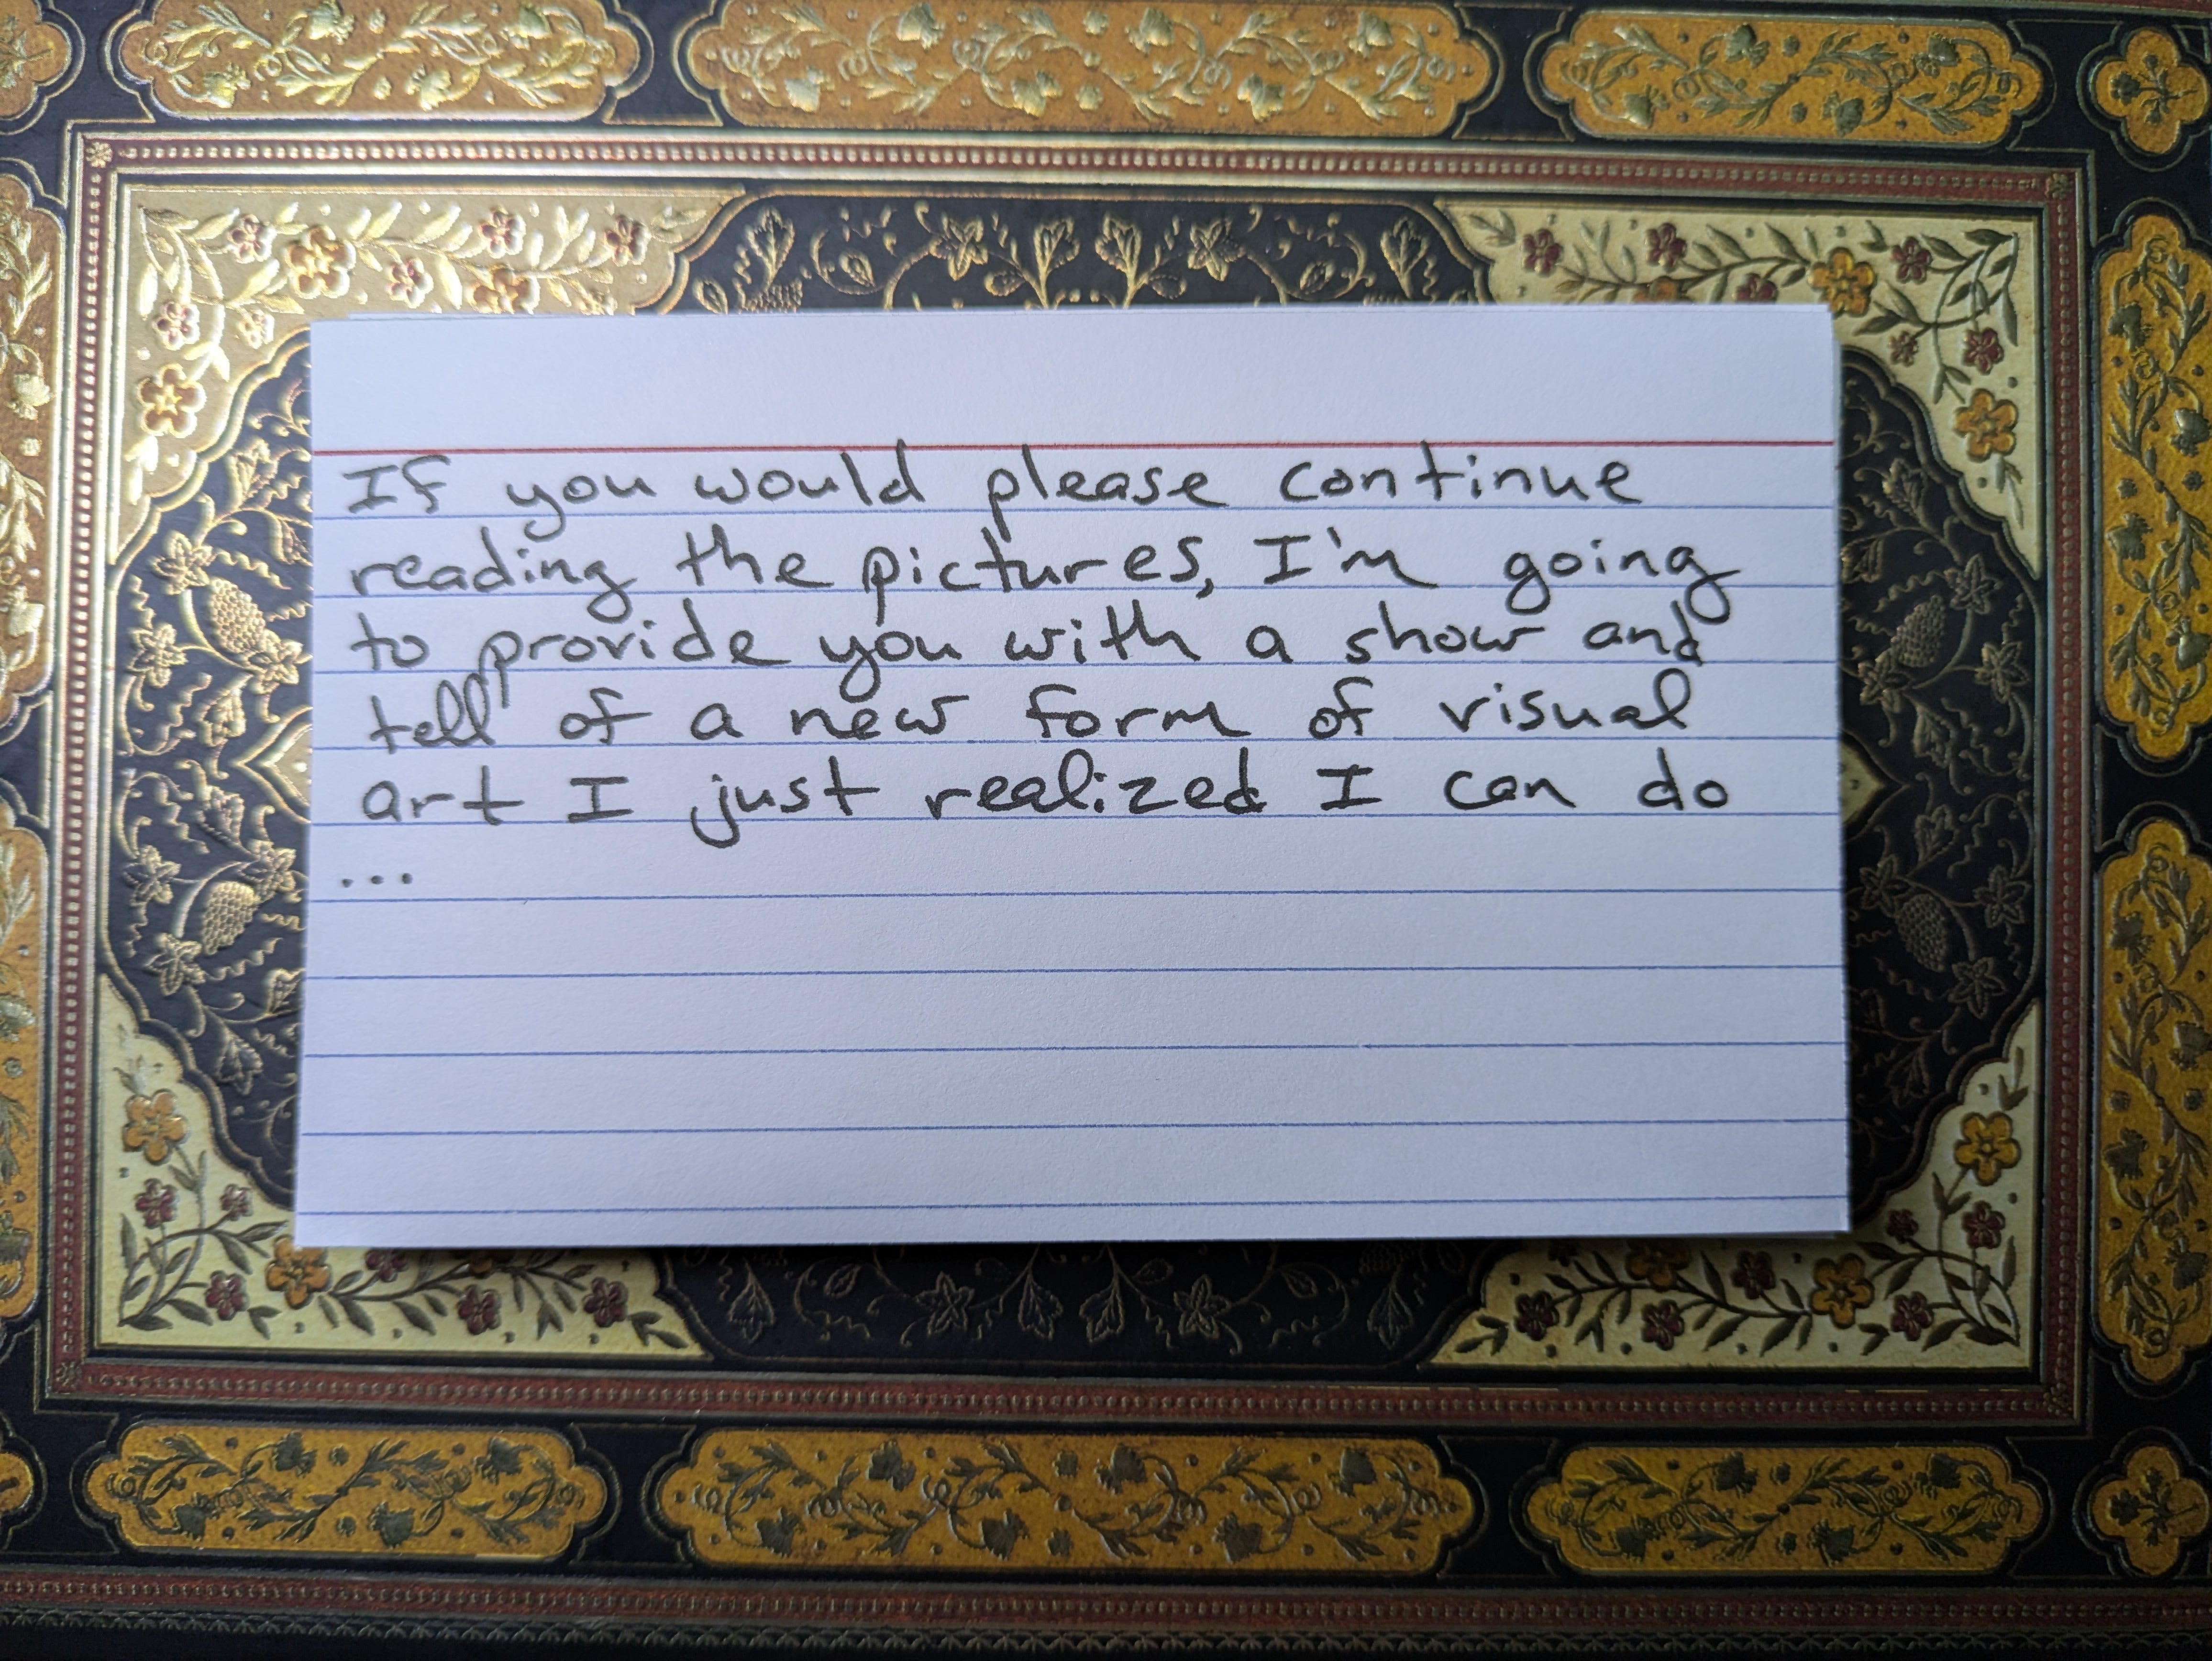 If you would please continue
reading the pictures, I'm going
to provide you with a show and
tell of a new form of visual
art I just realized I can do
...